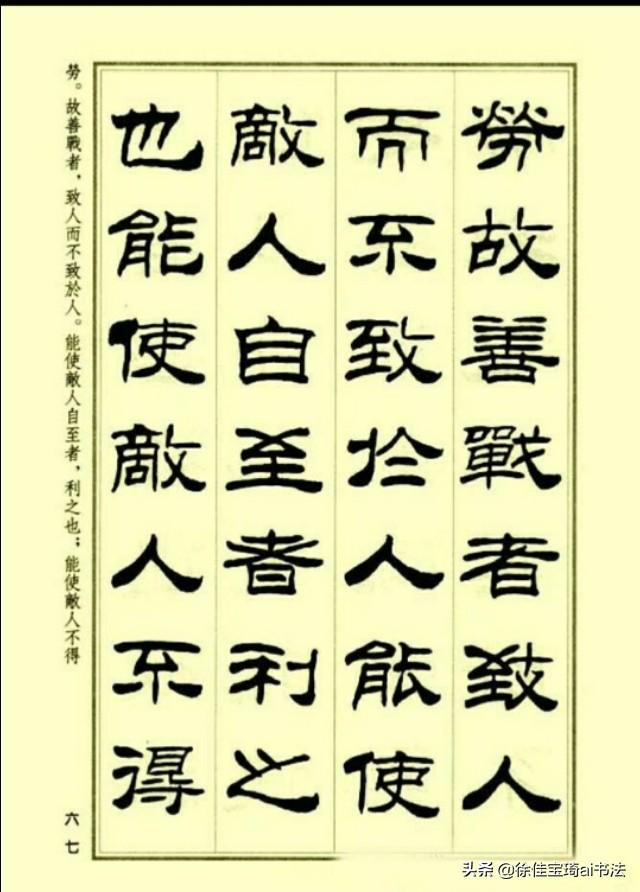 勞故善戰者致人
而不致於人能使
敵人自至者利之
也能使敵人不得
勞。故善戰者，致人而不致於人。能使敵人自至者，利之也；能使敵人不得
六七
头条 @徐佳宝琦ai书法